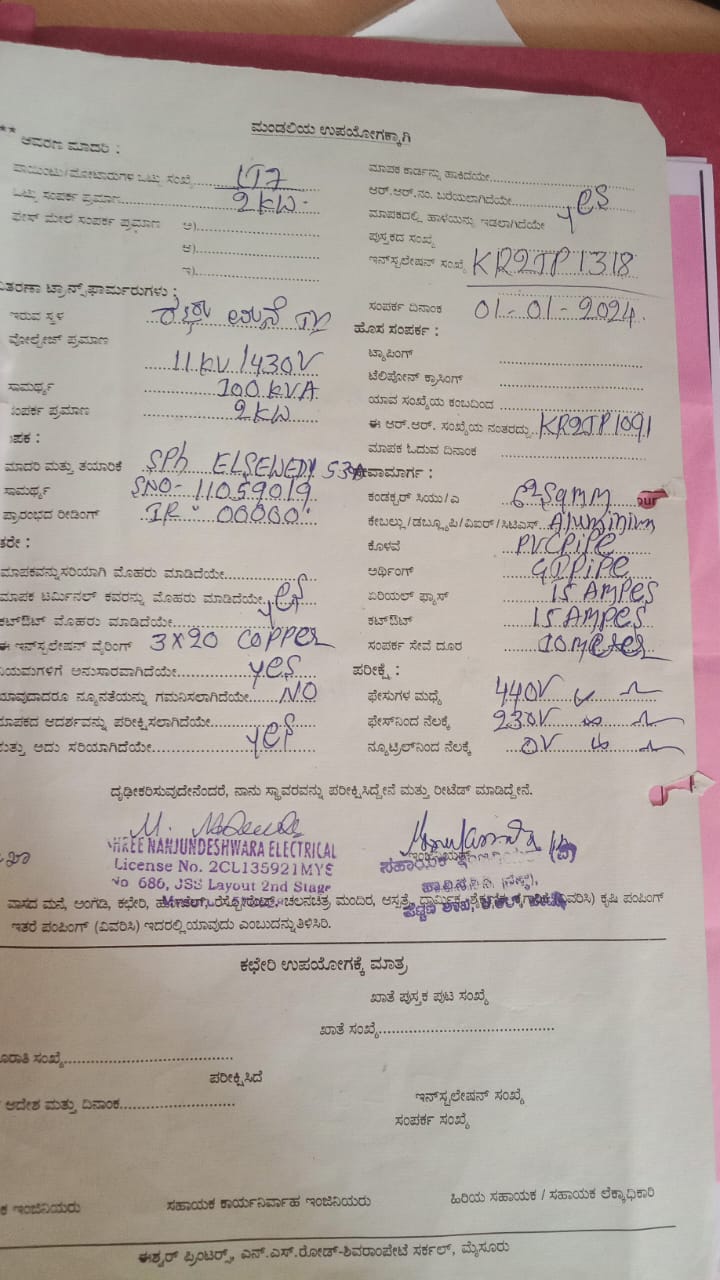 ಮಂಡಲಿಯ ಉಪಯೋಗಕ್ಕಾಗಿ
** ಆವರಣ ಮಾದರಿ :
ಪಾಯಿಂಟು/ಮೋಟಾರುಗಳ ಒಟ್ಟು ಸಂಖ್ಯೆ
ಒಟ್ಟು ಸಂಪರ್ಕ ಪ್ರಮಾಣ 2KW
ಫೇಸ್ ಮೇಲೆ ಸಂಪರ್ಕ ಪ್ರಮಾಣ ಅ)
ಆ)
ಇ)
ತರಣಾ ಟ್ರಾನ್ಸ್‌ಫಾರ್ಮರುಗಳು :
ಇರುವ ಸ್ಥಳ
ವೋಲ್ಟೇಜ್ ಪ್ರಮಾಣ
11KV/430V
ಸಾಮರ್ಥ್ಯ 100 KVA
ಸಂಪರ್ಕ ಪ್ರಮಾಣ 2KW
ಪಕ :
ಮಾದರಿ ಮತ್ತು ತಯಾರಿಕೆ SPh ELSEWEDY
ಸಾಮರ್ಥ್ಯ SNO- 11059019
ಪ್ರಾರಂಭದ ರೀಡಿಂಗ್ IR - 00000
ತರೇ :
ಮಾಪಕವನ್ನು ಸರಿಯಾಗಿ ಮೊಹರು ಮಾಡಿದೆಯೇ
ಮಾಪಕ ಟರ್ಮಿನಲ್ ಕವರನ್ನು ಮೊಹರು ಮಾಡಿದೆಯೇ yes
ಕಟ್‌ಔಟ್ ಮೊಹರು ಮಾಡಿದೆಯೇ
ಈ ಇನ್‌ಸ್ಟಲೇಷನ್ ವೈರಿಂಗ್ 3X20 COPPER
ನಿಯಮಗಳಿಗೆ ಅನುಸಾರವಾಗಿದೆಯೇ yes
ಯಾವುದಾದರೂ ನ್ಯೂನತೆಯನ್ನು ಗಮನಿಸಲಾಗಿದೆಯೇ NO
ಮಾಪಕದ ಆದರ್ಶವನ್ನು ಪರೀಕ್ಷಿಸಲಾಗಿದೆಯೇ
ಮತ್ತು ಅದು ಸರಿಯಾಗಿದೆಯೇ yes
ಮಾಪಕ ಕಾರ್ಡನ್ನು ಹಾಕಿದೆಯೇ
ಆರ್.ಆರ್.ನಂ. ಬರೆಯಲಾಗಿದೆಯೇ yes
ಮಾಪಕದಲ್ಲಿ ಹಾಳೆಯನ್ನು ಇಡಲಾಗಿದೆಯೇ
ಪುಸ್ತಕದ ಸಂಖ್ಯೆ
ಇನ್‌ಸ್ಟಲೇಷನ್ ಸಂಖ್ಯೆ KR2JP1318
ಸಂಪರ್ಕ ದಿನಾಂಕ 01-01-2024
ಹೊಸ ಸಂಪರ್ಕ :
ಟ್ಯಾಪಿಂಗ್
ಟೆಲಿಫೋನ್ ಕ್ರಾಸಿಂಗ್
ಯಾವ ಸಂಖ್ಯೆಯ ಕಂಬದಿಂದ
ಈ ಆರ್.ಆರ್. ಸಂಖ್ಯೆಯ ನಂತರದ್ದು KR2JP1091
ಮಾಪಕ ಓದುವ ದಿನಾಂಕ
ಸೇವಾಮಾರ್ಗ :
ಕಂಡಕ್ಟರ್ ಸಿಯು/ಎ Sqmm
ಕೇಬಲ್ಲು/ಡಬ್ಲ್ಯೂಪಿ/ವಿಐಆರ್/ಸಿಟಿಎಸ್ Aluminium
ಕೊಳವೆ PVC PiPE
ಅರ್ಥಿಂಗ್ GI PiPE
ಏರಿಯಲ್ ಫ್ಯೂಸ್ 15 AMPES
ಕಟ್‌ಔಟ್ 15 AMPES
ಸಂಪರ್ಕ ಸೇವೆ ದೂರ 10 meter
ಪರೀಕ್ಷೆ :
ಫೇಸುಗಳ ಮಧ್ಯೆ 440V
ಫೇಸ್‌ನಿಂದ ನೆಲಕ್ಕೆ 230V
ನ್ಯೂಟ್ರಲ್‌ನಿಂದ ನೆಲಕ್ಕೆ 0V
ದೃಢೀಕರಿಸುವುದೇನೆಂದರೆ, ನಾನು ಸ್ಥಾವರವನ್ನು ಪರೀಕ್ಷಿಸಿದ್ದೇನೆ ಮತ್ತು ರೀಟೆಡ್ ಮಾಡಿದ್ದೇನೆ.
SHREE NANJUNDESHWARA ELECTRICAL
License No. 2CL135921MYS
No 686, JSS Layout 2nd Stage
ಸಹಾಯಕ
ವಾಸದ ಮನೆ, ಅಂಗಡಿ, ಕಛೇರಿ, ಹೋಟೆಲ್, ರೆಸ್ಟೋರೆಂಟ್, ಚಲನಚಿತ್ರ ಮಂದಿರ, ಆಸ್ಪತ್ರೆ, ಧಾರ್ಮಿಕ (ವಿವರಿಸಿ) ಕೃಷಿ ಪಂಪಿಂಗ್
ಇತರೆ ಪಂಪಿಂಗ್ (ವಿವರಿಸಿ) ಇದರಲ್ಲಿ ಯಾವುದು ಎಂಬುದನ್ನು ತಿಳಿಸಿರಿ.
ಕಛೇರಿ ಉಪಯೋಗಕ್ಕೆ ಮಾತ್ರ
ಖಾತೆ ಪುಸ್ತಕ ಪುಟ ಸಂಖ್ಯೆ
ಖಾತೆ ಸಂಖ್ಯೆ
ರಾತಿ ಸಂಖ್ಯೆ
ಪರೀಕ್ಷಿಸಿದೆ
ಇನ್‌ಸ್ಟಲೇಷನ್ ಸಂಖ್ಯೆ
ಆದೇಶ ಮತ್ತು ದಿನಾಂಕ
ಸಂಪರ್ಕ ಸಂಖ್ಯೆ
ಕ ಇಂಜಿನಿಯರು ಸಹಾಯಕ ಕಾರ್ಯನಿರ್ವಾಹ ಇಂಜಿನಿಯರು ಹಿರಿಯ ಸಹಾಯಕ / ಸಹಾಯಕ ಲೆಕ್ಕಾಧಿಕಾರಿ
ಈಶ್ವರ್ ಪ್ರಿಂಟರ್ಸ್, ಎನ್.ಎಸ್.ರೋಡ್-ಶಿವರಾಂಪೇಟೆ ಸರ್ಕಲ್, ಮೈಸೂರು